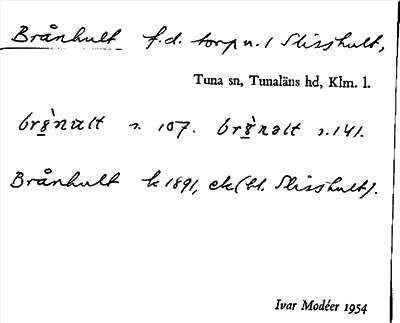 Brånhult f.d. torp u. / Slisshult,
Tuna sn, Tunaläns hd, Klm. l.
brå̀nult s. 107. brå̀nəlt s. 141.
Brånhult k 1891, ek (bl. Slisshult).
Ivar Modéer 1954